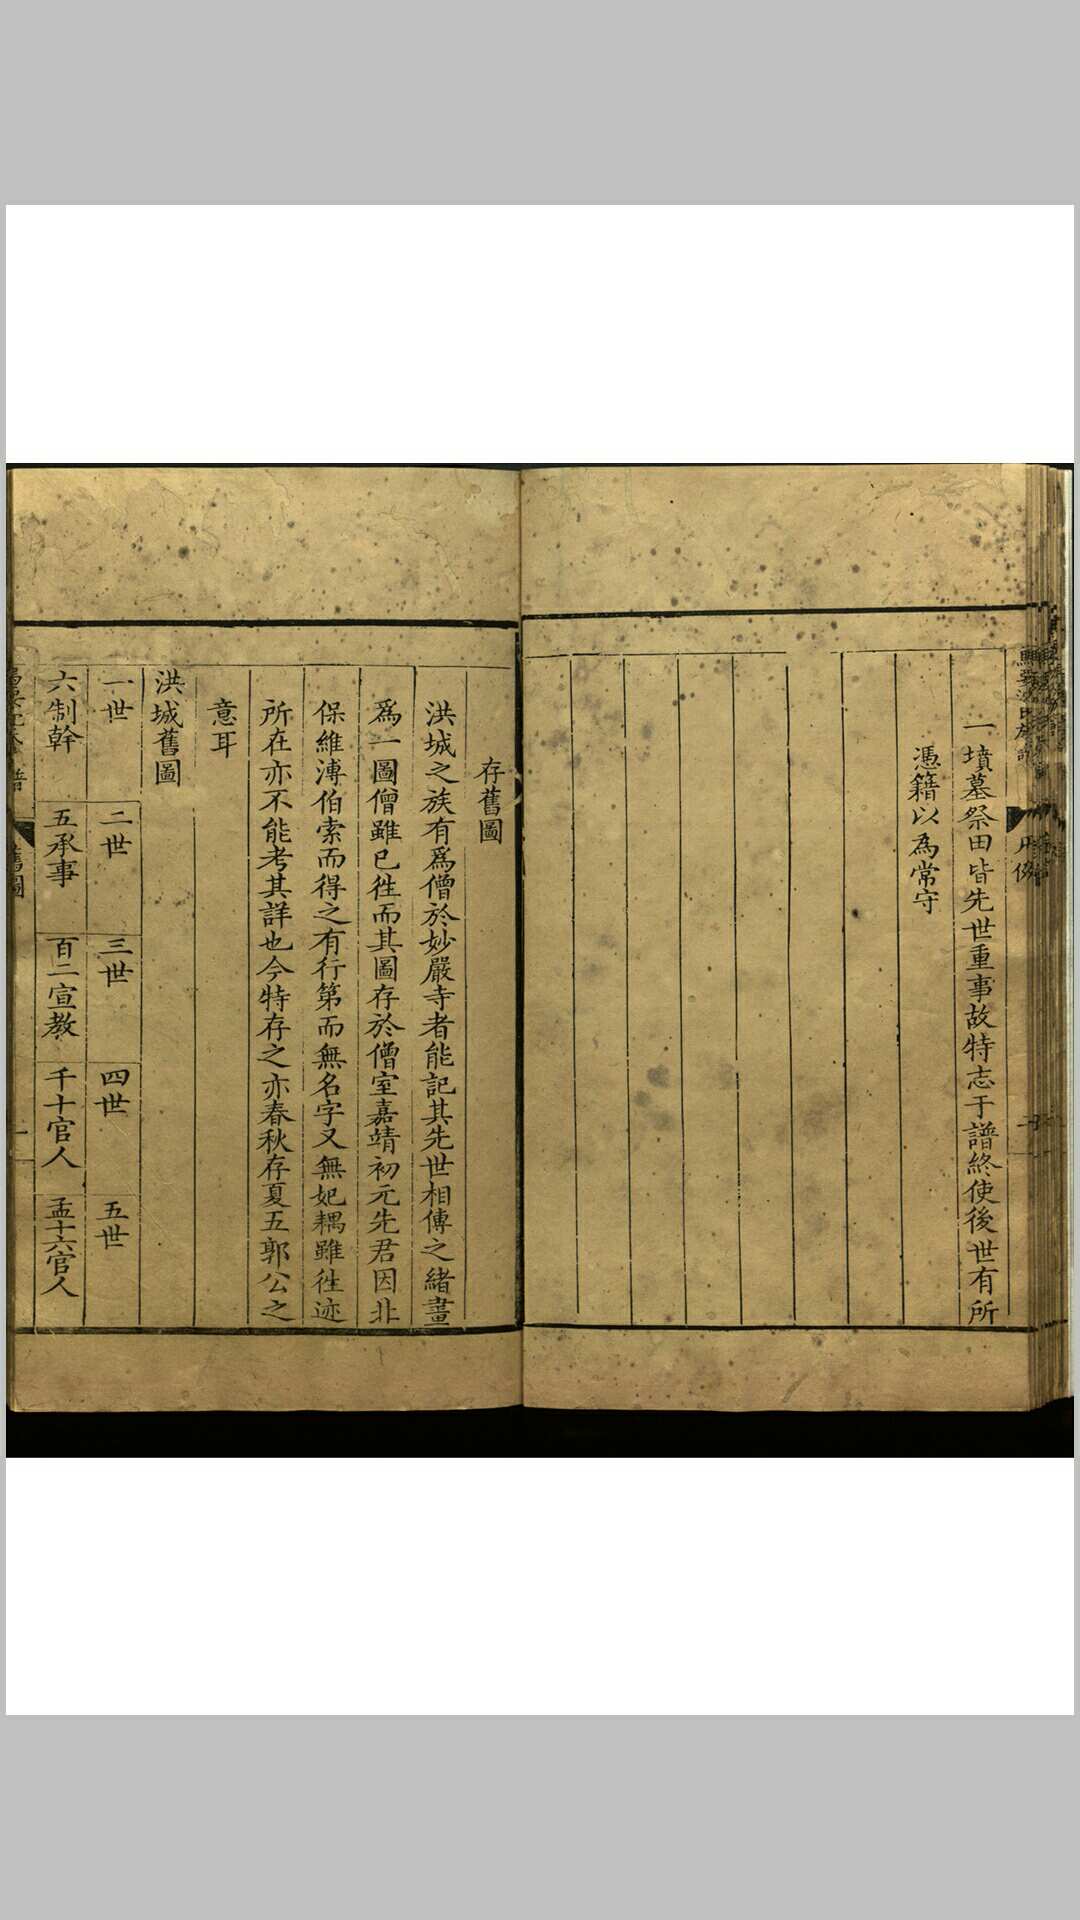 一墳墓祭田皆先世重事故特志于譜終使後世有所
憑籍以為常守
存舊圖
洪城之族有爲僧於妙嚴寺者能記其先世相傳之緒畫
爲一圖僧雖已徃而其圖存於僧室嘉靖初元先君因北
保維溥伯索而得之有行第而無名字又無妃耦雖徃迹
所在亦不能考其詳也今特存之亦春秋存夏五郭公之
意耳
洪城舊圖
一世 二世 三世 四世 五世
六制幹 五承事 百二宣教 千十官人 孟十六官人
舊圖